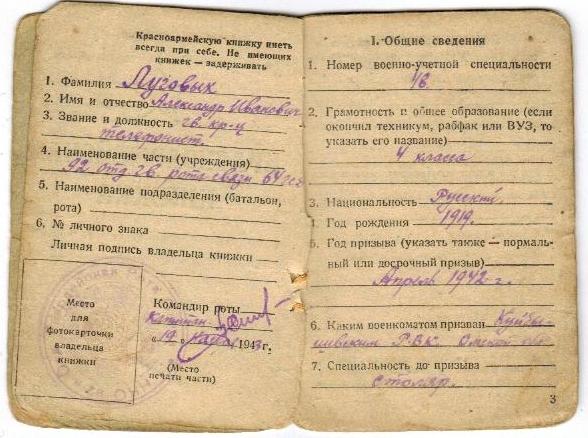 Красноармейскую книжку иметь
всегда при себе. Не имеющих
книжек — задерживать
1. Фамилия Луговых
2. Имя и отчество Александр Иванович
3. Звание и должность гв. кр-ц
телефонист.
4. Наименование части (учреждения)
92 отд гв. рота связи
5. Наименование подразделения (батальон,
рота)
6. № личного знака
Личная подпись владельца книжки
Место
для
фотокарточки
владельца
книжки
Командир роты
капитан
„19“ 1943 г.
(Место
печати части)
I. Общие сведения
1. Номер военно-учетной специальности
2. Грамотность и общее образование (если
окончил техникум, рабфак или ВУЗ, то
указать его название)
4 класса
3. Национальность Русский
4. Год рождения 1919.
5. Год призыва (указать также — нормаль-
ный или досрочный призыв)
Апрель 1942 г.
6. Каким военкоматом призван Куйбы-
шевским РВК. Омской обл
7. Специальность до призыва
столяр.
3